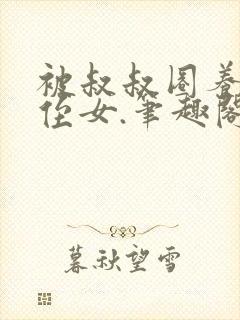 被叔叔圈养
侄女.笔趣阁
暮秋望雪